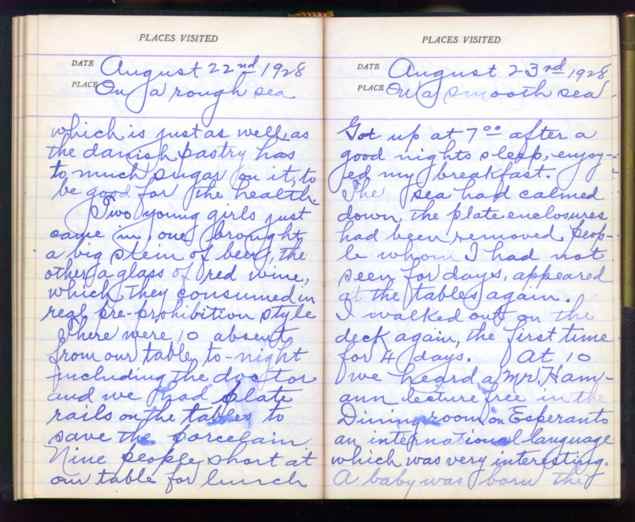 PLACES VISITED
DATE August 22nd 1928
PLACE On a rough sea
which is just as well as
the danish pastry has
to much sugar on it, to
be good for the health
Two young girls just
came in, one brought
a big stein of beer, the
other a glass of red wine,
which they consumed in
real pre-prohibition style
There were 10 absent
from our table, to-night
including the doctor
and we had plate
rails on the tables to
save the porcelain.
Nine people short at
our table for lunch
PLACES VISITED
DATE August 23rd 1928
PLACE On a smooth sea
Got up at 7 00 after a
good nights sleep, enjoy-
ed my breakfast.
The sea had calmed
down, the plate enclosures
had been removed, peop-
le whom I had not
seen for days, appeared
at the tables again.
I walked out on the
deck again, the first time
for 4 days. At 10
we heard a Mr Ham-
ann lecture free in the
Diningroom on Esperanto
an international language
which was very interesting.
A baby was born the